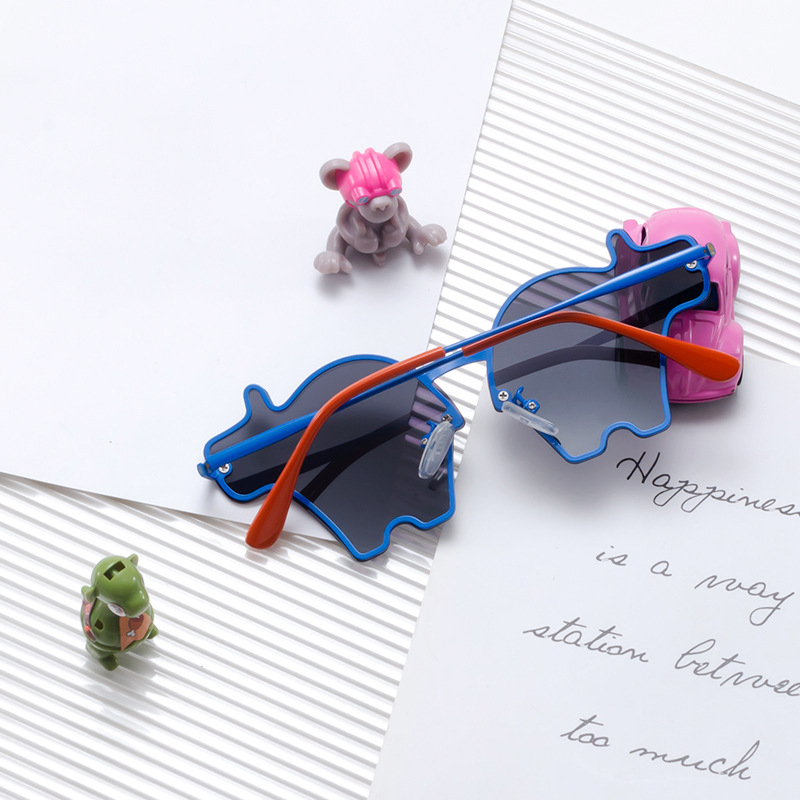 Happiness
is a way
station between
too much